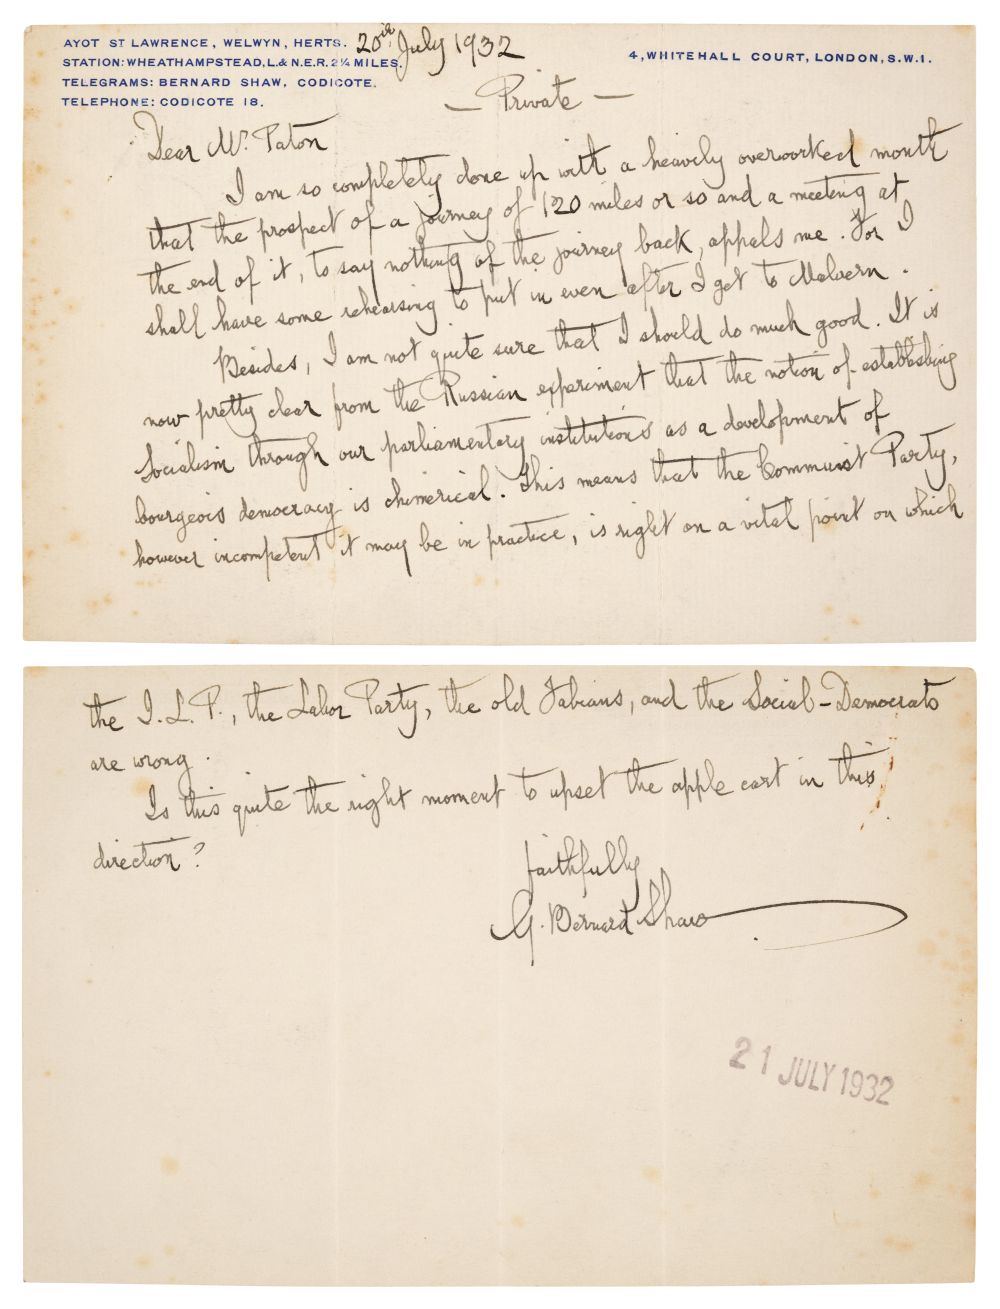 AYOT ST LAWRENCE, WELWYN, HERTS.
STATION: WHEATHAMPSTEAD, L.& N.E.R. 2¼ MILES.
TELEGRAMS: BERNARD SHAW, CODICOTE.
TELEPHONE: CODICOTE 18.
20th July 1932
4, WHITEHALL COURT, LONDON, S.W.1.
— Private —
Dear Mr. Paton
I am so completely done up with a heavily overworked month
that the prospect of a journey of 120 miles or so and a meeting at
the end of it, to say nothing of the journey back, appals me. For I
shall have some rehearsing to put in even after I get to Malvern.
Besides, I am not quite sure that I should do much good. It is
now pretty clear from the Russian experiment that the notion of establishing
Socialism through our parliamentary institutions as a development of
bourgeois democracy is chimerical. This means that the Communist Party,
however incompetent it may be in practice, is right on a vital point on which
the I.L.P., the Labor Party, the old Fabians, and the Social-Democrats
are wrong.
Is this quite the right moment to upset the apple cart in this
direction?
faithfully
G. Bernard Shaw
21 JULY 1932